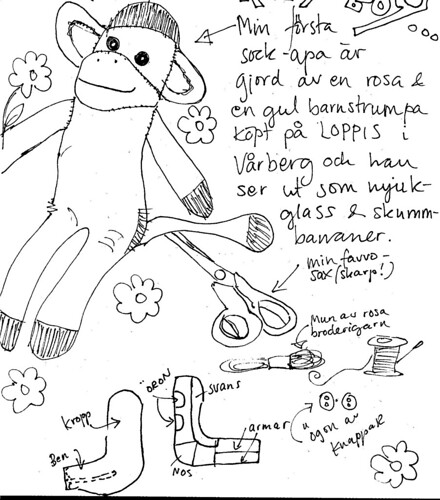 Min första
sock-apa är
gjord av en rosa &
en gul barnstrumpa
köpt på LOPPIS i
Vårberg och han
ser ut som mjuk-
glass & skumm-
bananer.
min favvo-
sax (skarp!)
Mun av rosa
broderigarn
ÖRON
svans
kropp
Ben
armar
NOS
ögon av
knappar